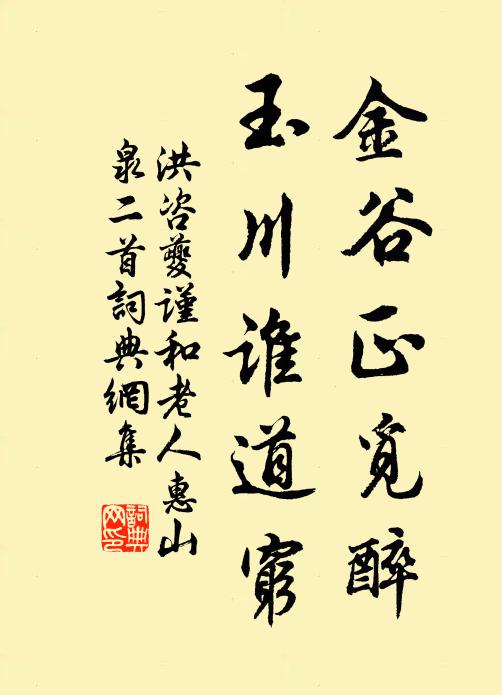 金谷正覓醉
玉川誰道窮
洪咨夔謹和老人惠山
泉二首詞典網集
詞典
网印